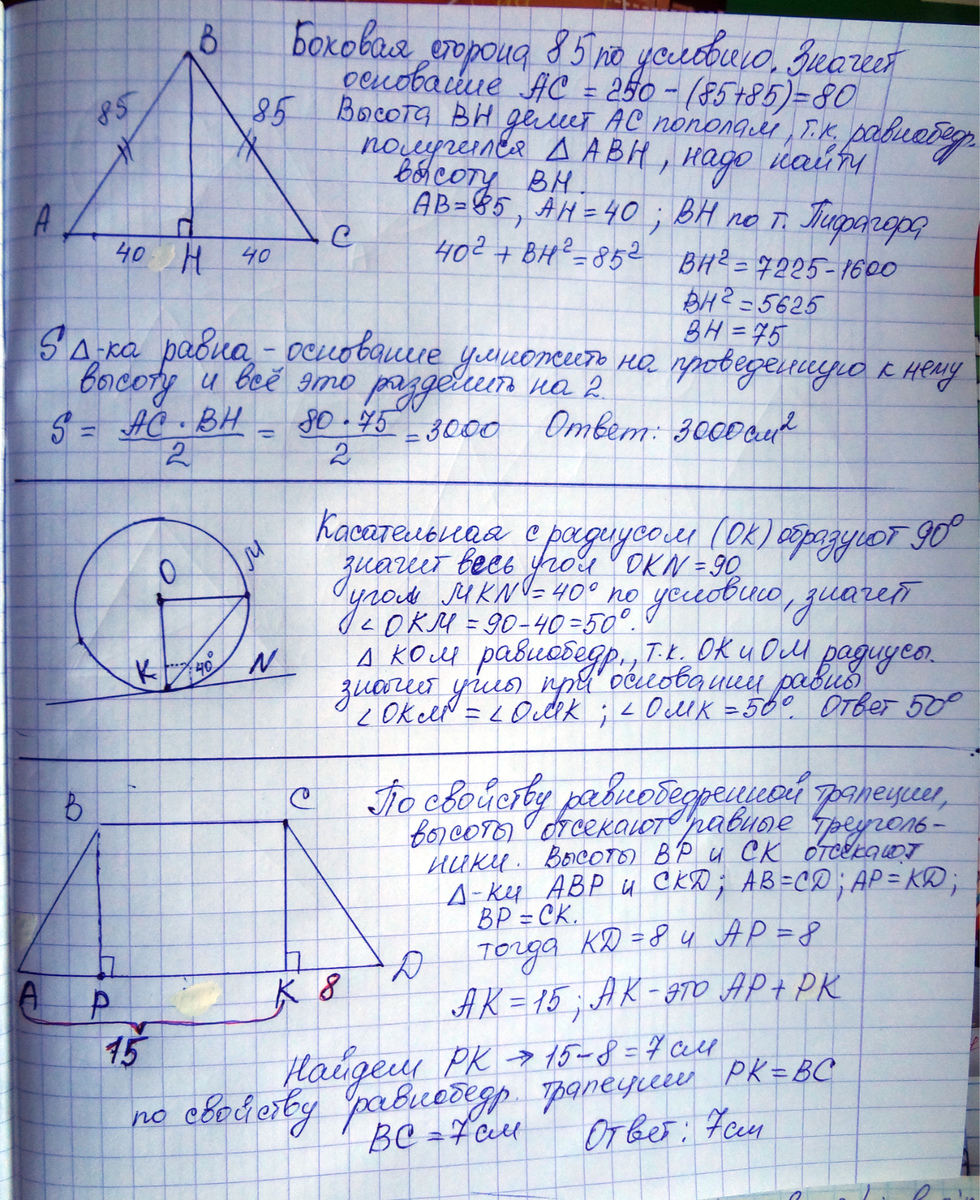 B
Боковая сторона 85 по условию. Значит
основание AC = 250 - (85+85) = 80
Высота BH делит AC пополам, т.к. равнобедр.
получился Δ ABH, надо найти
высоту BH.
AB = 85, AH = 40; BH по т. Пифагора
40² + BH² = 85² BH² = 7225 - 1600
BH² = 5625
BH = 75
85 85
A C
40 H 40
S Δ-ка равна - основание умножить на проведенную к нему
высоту и всё это разделить на 2.
S = AC · BH / 2 = 80 · 75 / 2 = 3000 Ответ: 3000 см²
Касательная с радиусом (OK) образуют 90°
значит весь угол OKN = 90
угол MKN = 40° по условию, значит
∠ OKM = 90 - 40 = 50°.
Δ KOM равнобедр., т.к. OK и OM радиусы.
значит углы при основании равны
∠ OKM = ∠ OMK ; ∠ OMK = 50°. Ответ 50°
O M
K 40° N
По свойству равнобедренной трапеции,
высоты отсекают равные треуголь-
ники. Высоты BP и CK отсекают
Δ-ки ABP и CKD; AB = CD; AP = KD;
BP = CK.
тогда KD = 8 и AP = 8
AK = 15; AK - это AP + PK
B C
A P K 8 D
15
Найдем PK → 15 - 8 = 7 см
по свойству равнобедр. трапеции PK = BC
BC = 7 см Ответ: 7 см